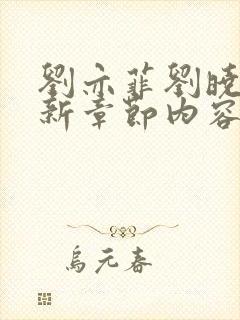 劉亦菲劉曉
新章節内容
烏元春